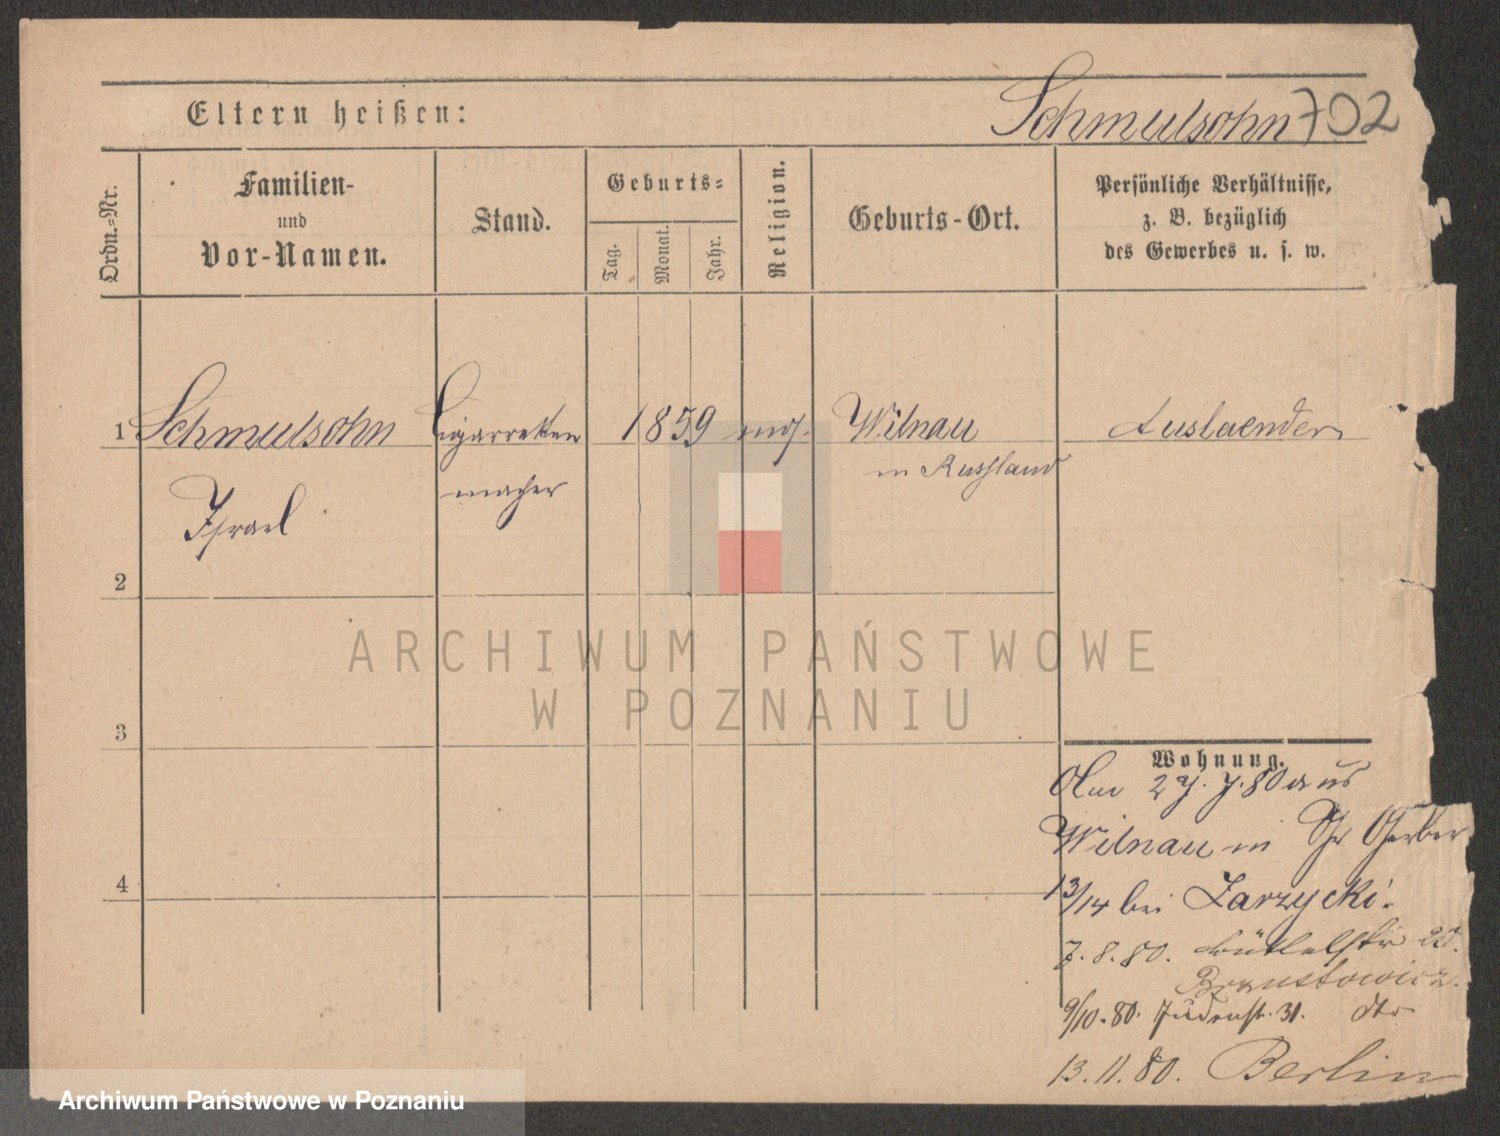 Eltern heißen:
Schmulsohn 702
Ordn.-Nr.
Familien-
und
Vor-Namen.
Stand.
Geburts-
Tag.
Monat.
Jahr.
Religion.
Geburts-Ort.
Persönliche Verhältnisse,
z. B. bezüglich
des Gewerbes u. s. w.
1 Schmulsohn Cigarretten 1859 mos. Wilnau Auslaender
in Russland
Israel macher
2
ARCHIWUM PAŃSTWOWE
W POZNANIU
3
Wohnung.
27. 7. 80 aus
Wilnau in Gr Gerber
13/14 bei Zarzycki.
7. 8. 80. Büttelstr
9/10. 80. Judenst. 31. dto
13. 11. 80. Berlin
4
Archiwum Państwowe w Poznaniu